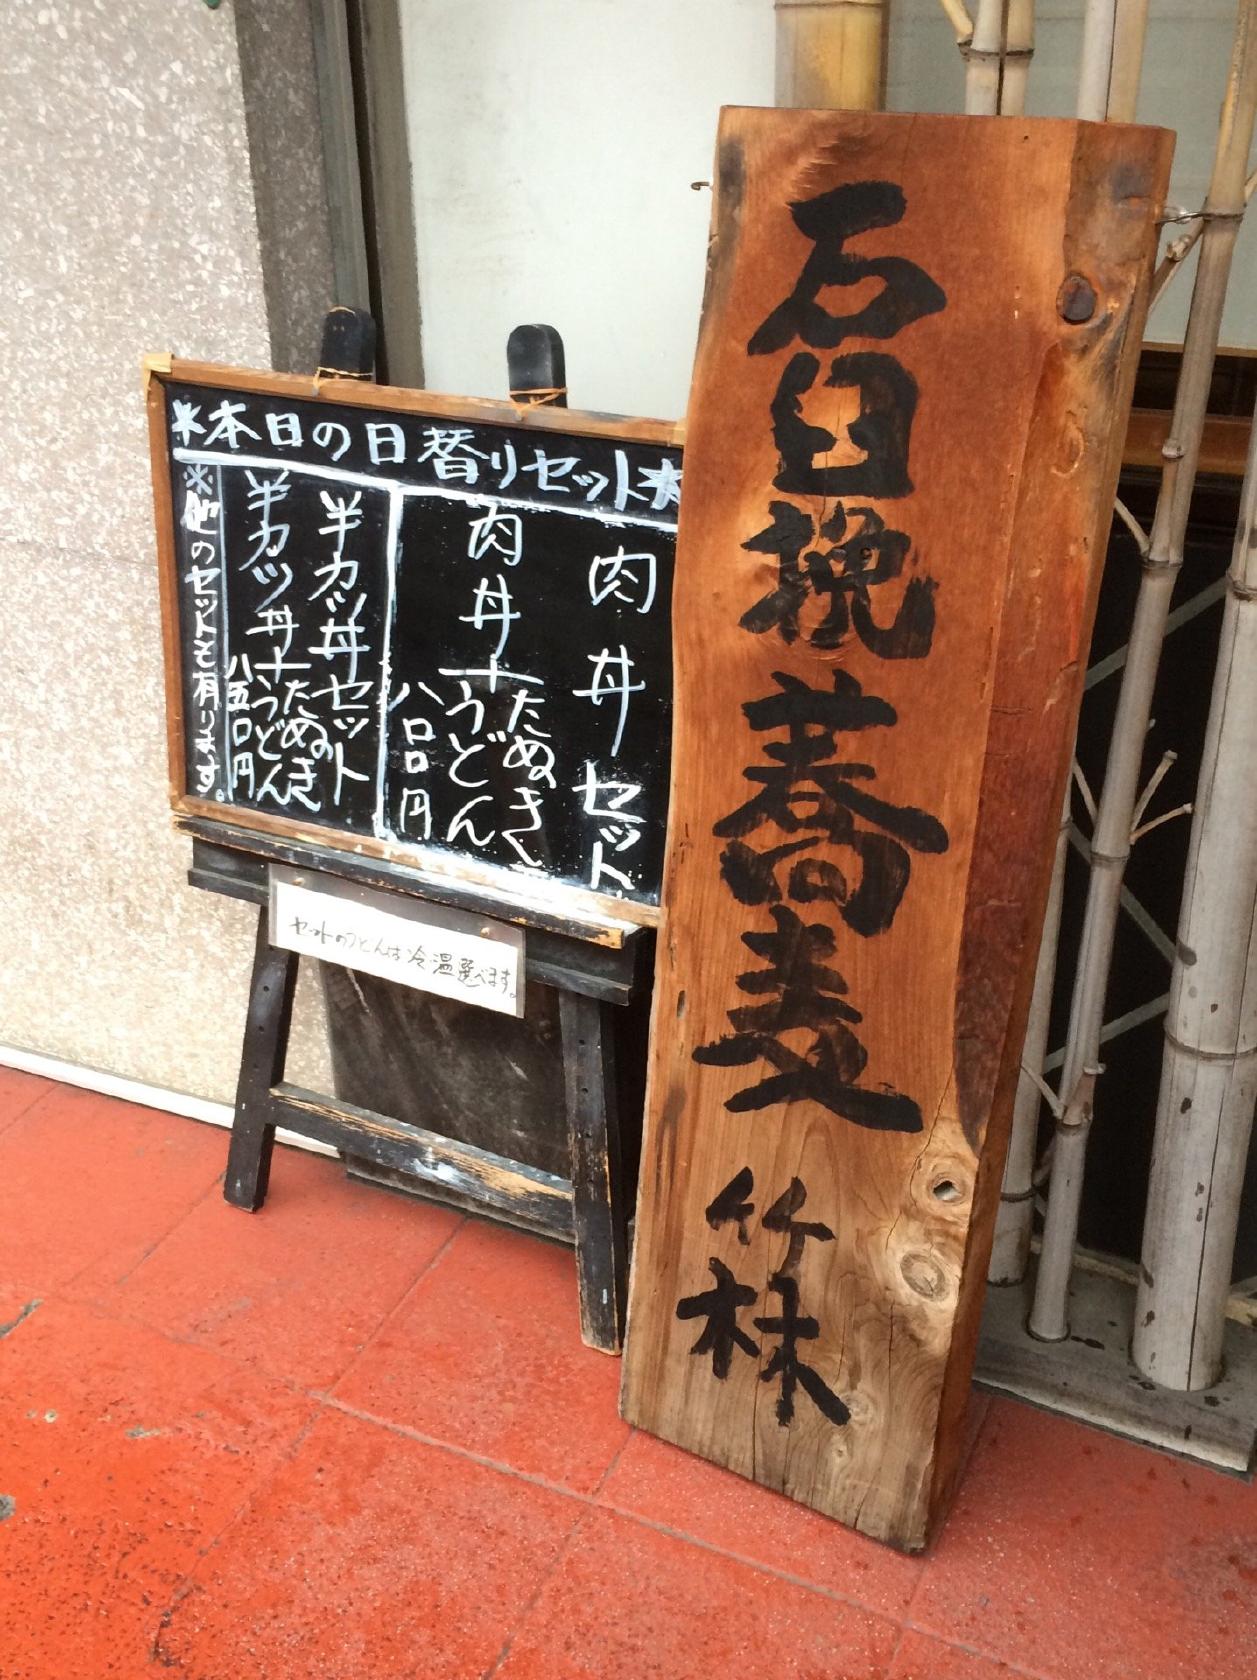 石臼挽蕎麦
竹林
*本日の日替りセット*
肉丼セット
肉丼+たぬきうどん
八〇〇円
半カツ丼セット
半カツ丼+たぬきうどん
八五〇円
※他のセットも有ります。
セットのうどんは冷温選べます。